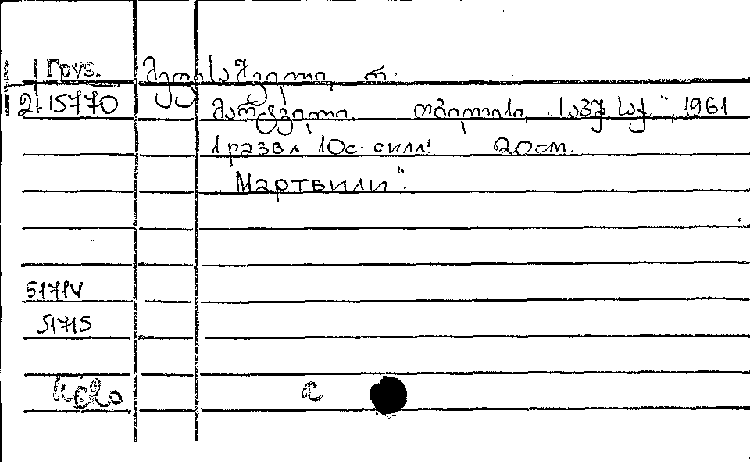 Груз. მეფისაშვილი, რ.
2.15770 მარტვილი. თბილისი, „საბჭ. საქ.", 1961
1 развл. 10с. силл. 20см.
"Мартвили".
51714
51715